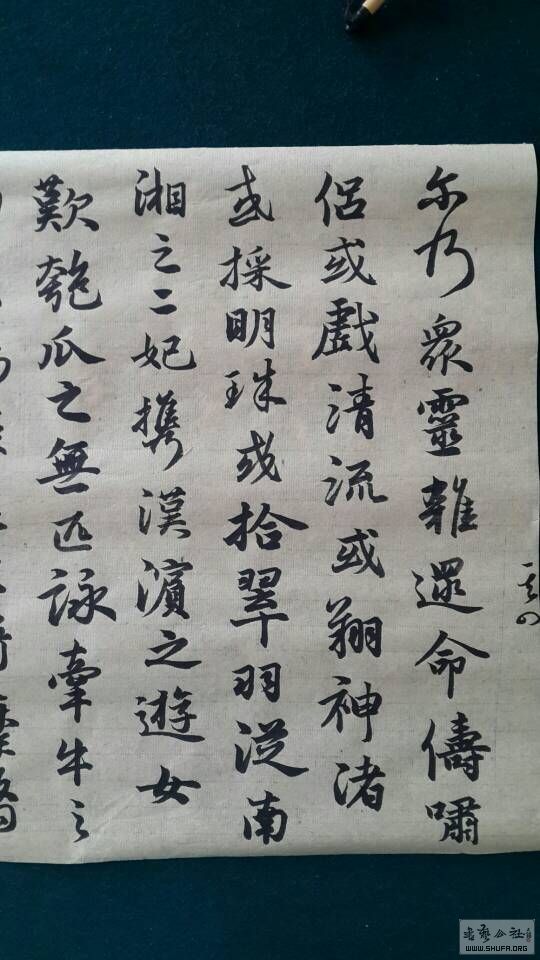 其四
尔乃眾靈雜遝命儔嘯
侶或戲清流或翔神渚
或採明珠或拾翠羽從南
湘之二妃攜漢濱之遊女
歎匏瓜之無匹詠牽牛之
书艺公社
WWW.SHUFA.ORG